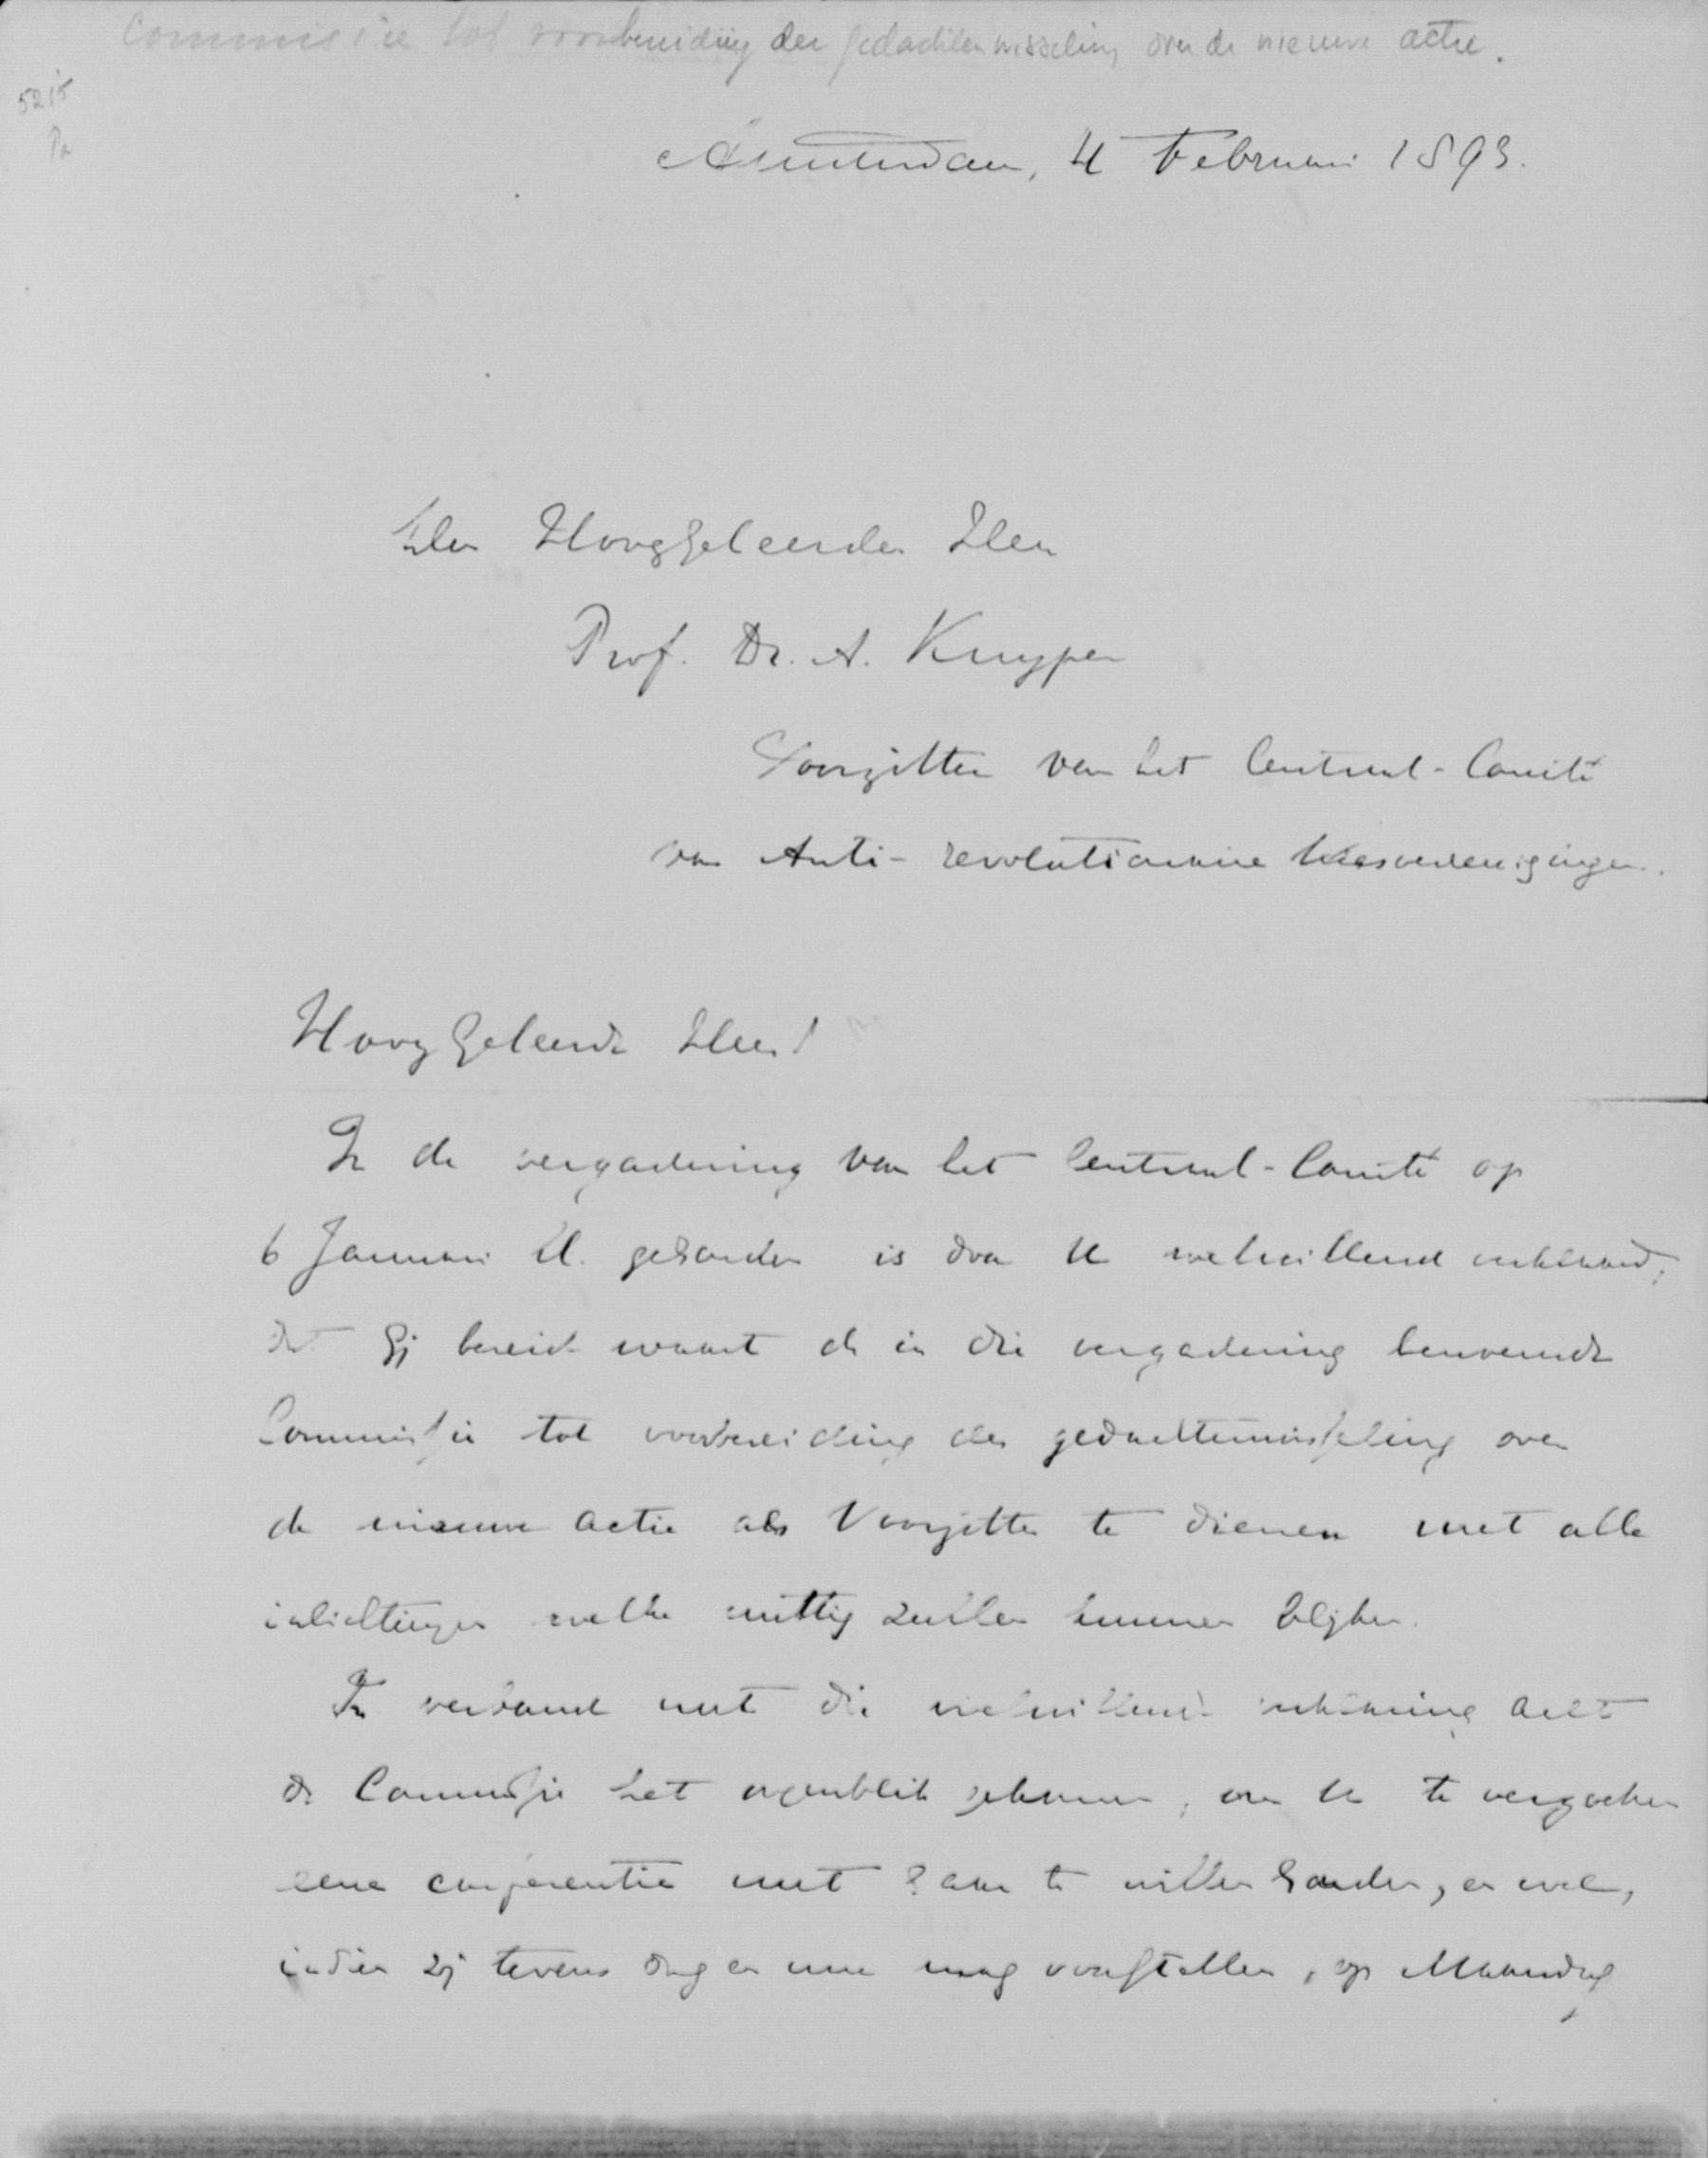 Commissie tot voorbereiding der gedachtenwisseling over de nieuwe actie.
5215
Pa
Amsterdam, 4 Februari 1893.
Den Hooggeleerden Heer
Prof. Dr. A. Kuyper
Voorzitter van het Centraal-Comité
van Anti-revolutionaire Kiesvereenigingen.
HoogGeleerde Heer!
In de vergadering van het Centraal-Comité op
6 Januari ll. gehouden is door U welwillend verklaard,
dat Gij bereid waart de in die vergadering benoemde
Commissie tot voorbereiding der gedachtenwisseling over
de nieuwe actie als Voorzitter te dienen met alle
inlichtingen welke nuttig zullen kunnen blijken.
In verband met die welwillende verklaring acht
de Commissie het oogenblik gekomen, om U te verzoeken
eene conferentie met haar te willen houden, en wel,
indien zij tevens dag en uur mag voorstellen, op Maandag